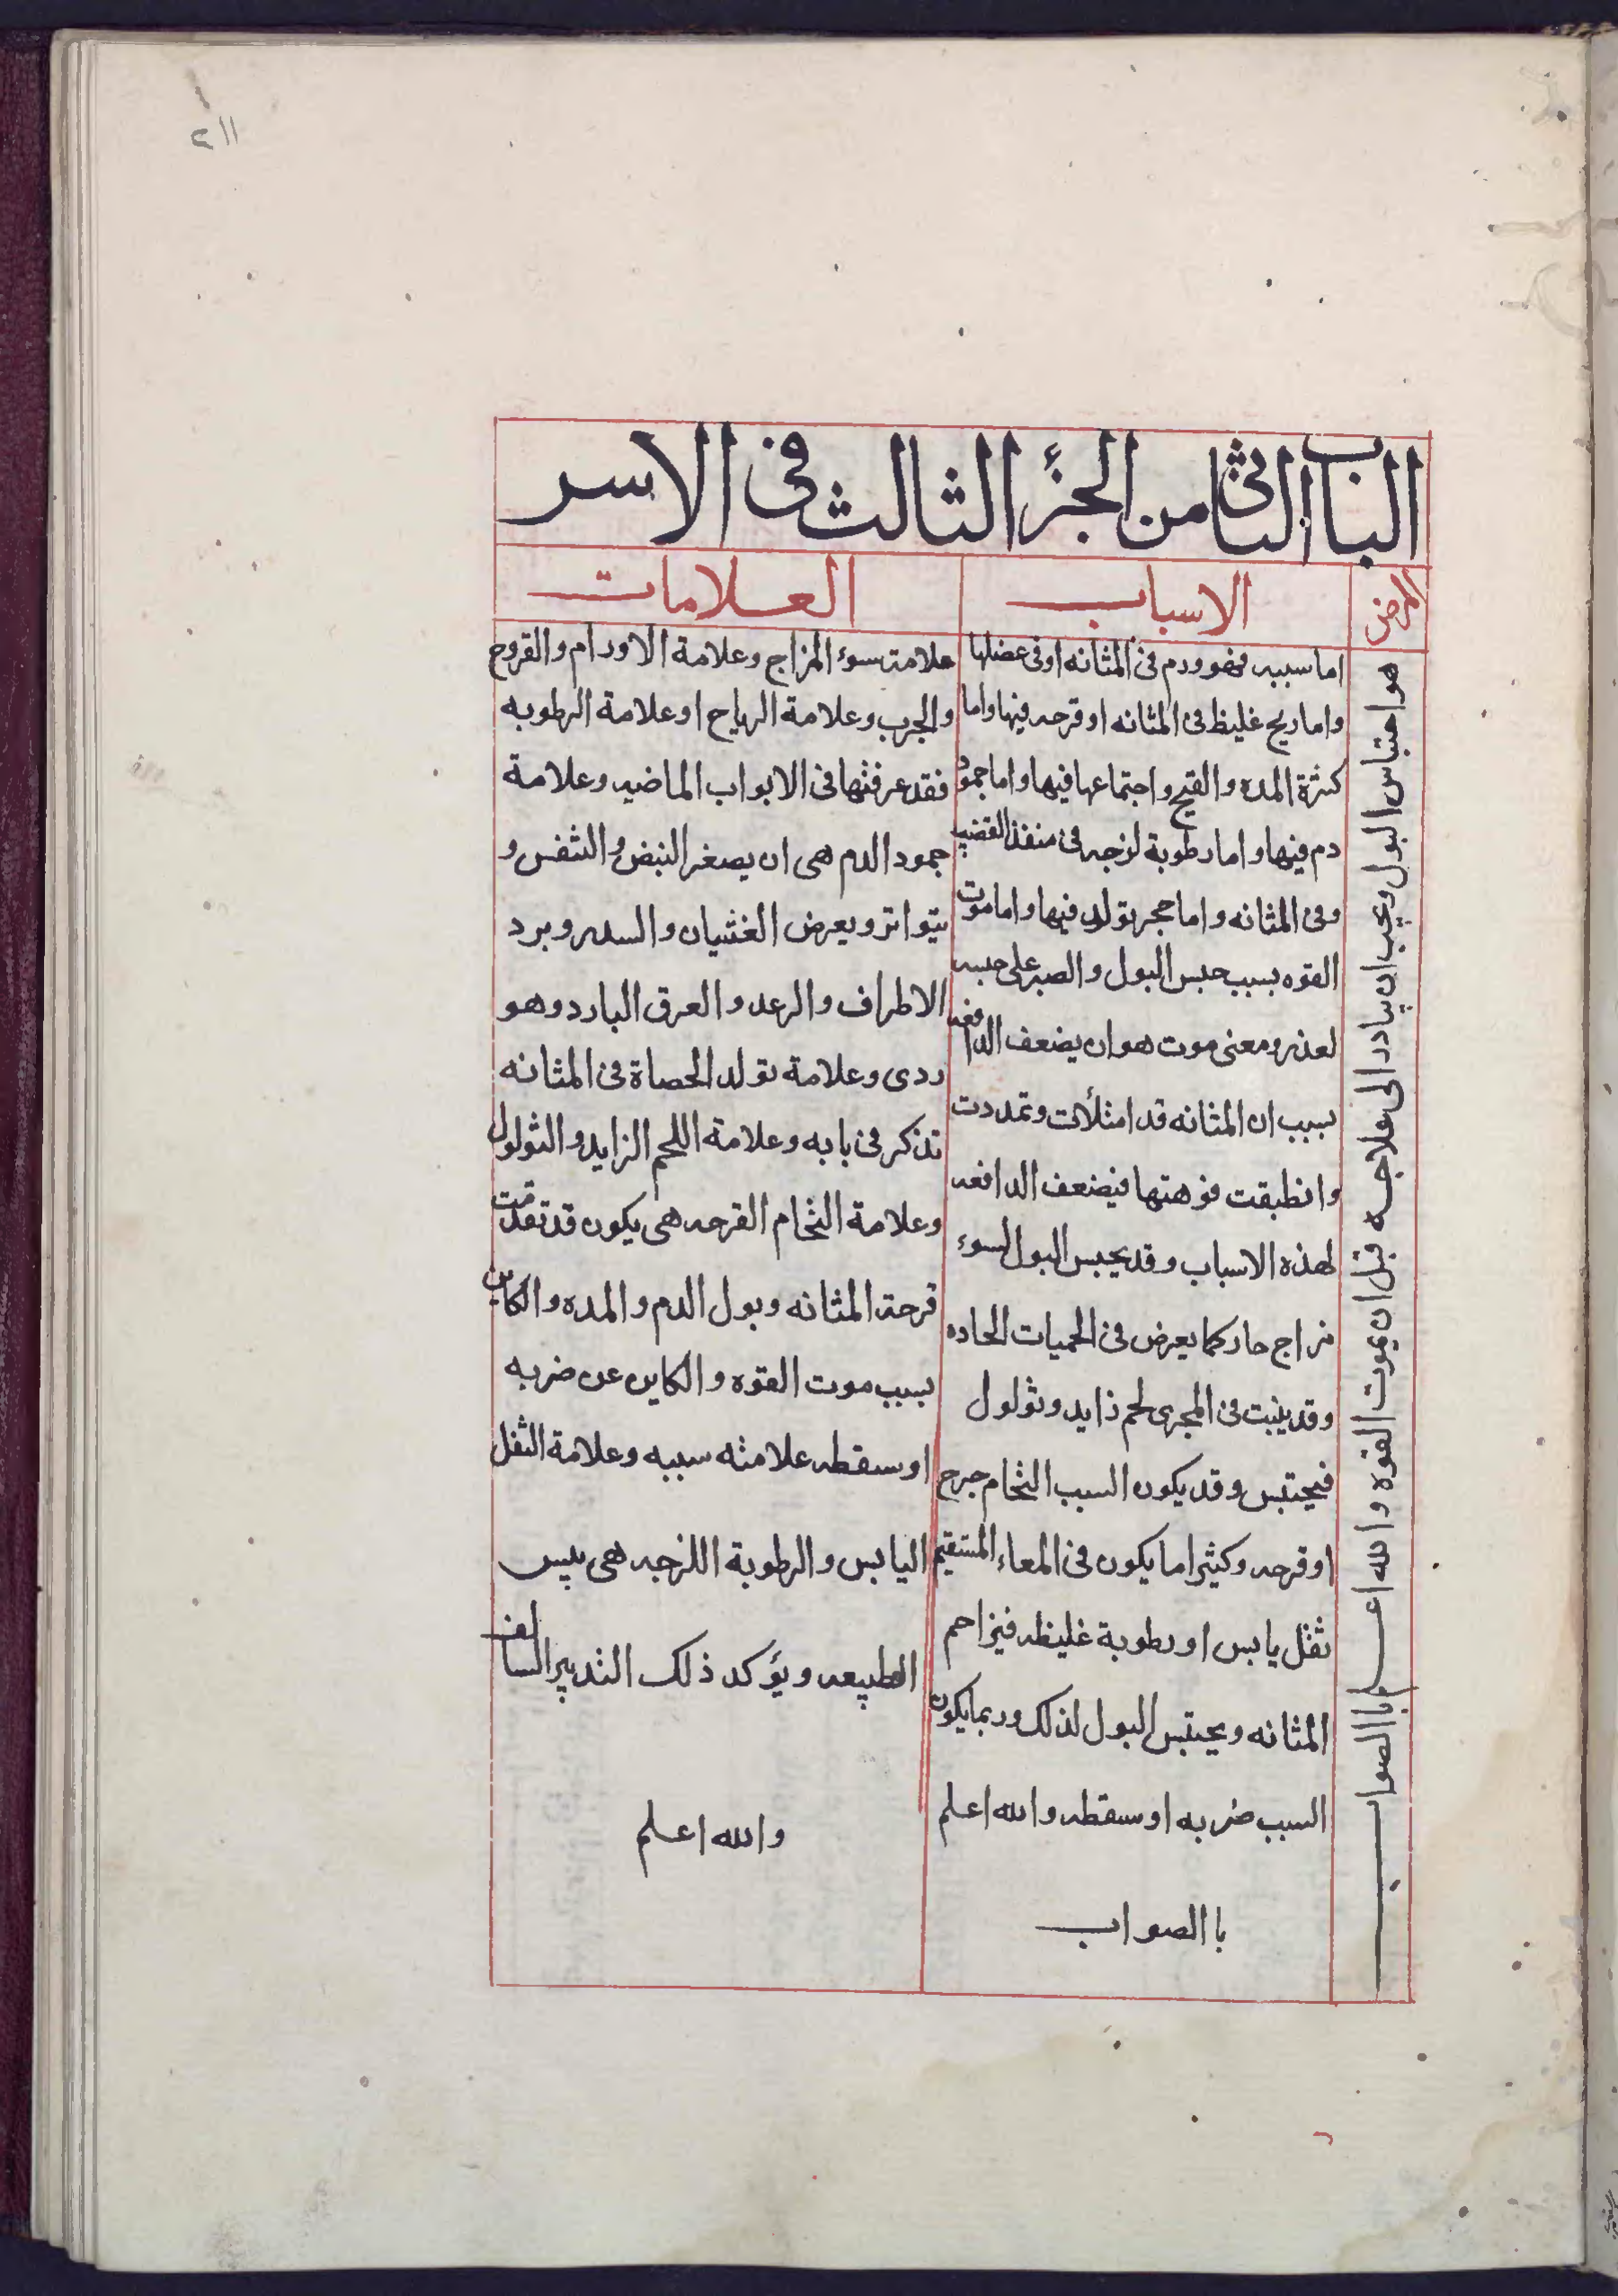 ٢١١
الباب الثاني من الجزء الثالث في الاسر
المرض
هو احتباس البول ويجب ان يبادر الى علاجه قبل ان يموت القوه والله اعلم باالصواب
الاسباب
اما سببه فهو ورم فى المثانه او فى عضلها
واما ريح غليظ فى المثانه او قرحه فيها واما
كثرة المده والقيح واجتماعها فيها واما جمود
دم فيها واما رطوبة لزجه فى منفذ القضيب
وفى المثانه واما حجر تولد فيها واما موت
القوه بسبب حبس البول والصبر على حبسه
لعذر ومعنى موت هو ان يضعف الدافعه
بسبب ان المثانه قد امتلأت وتمددت
وانطبقت فوهتها فيضعف الدافعه
لهذه الاسباب وقد يحبس البول لسوء
مزاج حار كما يعرض فى الحميات الحاده
وقد ينبت فى المجرى لحم زايد وثولول
فيحتبس وقد يكون السبب التحام جرح
او قرحه وكثيرا ما يكون فى المعاء المستقيم
ثفل يابس او رطوبة غليظه فيزاحم
المثانه ويحتبس البول لذلك وربما يكون
السبب ضربه او سقطه والله اعلم
باالصواب
العلامات
علامت سوء المزاج وعلامة الاورام والقروح
والجرب وعلامة الرياح او علامة الرطوبه
فقد عرفتها فى الابواب الماضيه وعلامة
جمود الدم هى ان يصغر النبض والنفس و
يتواتر ويعرض الغشيان والسدر وبرد
الاطراف والرعد والعرق البارد وهو
ردى وعلامة تولد الحصاة فى المثانه
تذكر فى بابه وعلامة اللحم الزايد والثولول
وعلامة التحام القرحه هى يكون قد تقدمت
قرحة المثانه وبول الدم والمده والكاين
بسبب موت القوه والكاين عن ضربه
او سقطه علامته سببه وعلامة الثفل
اليابس والرطوبة اللزجه هى يبس
الطبيعه ويؤكد ذلك التدبير السالف
والله اعلم